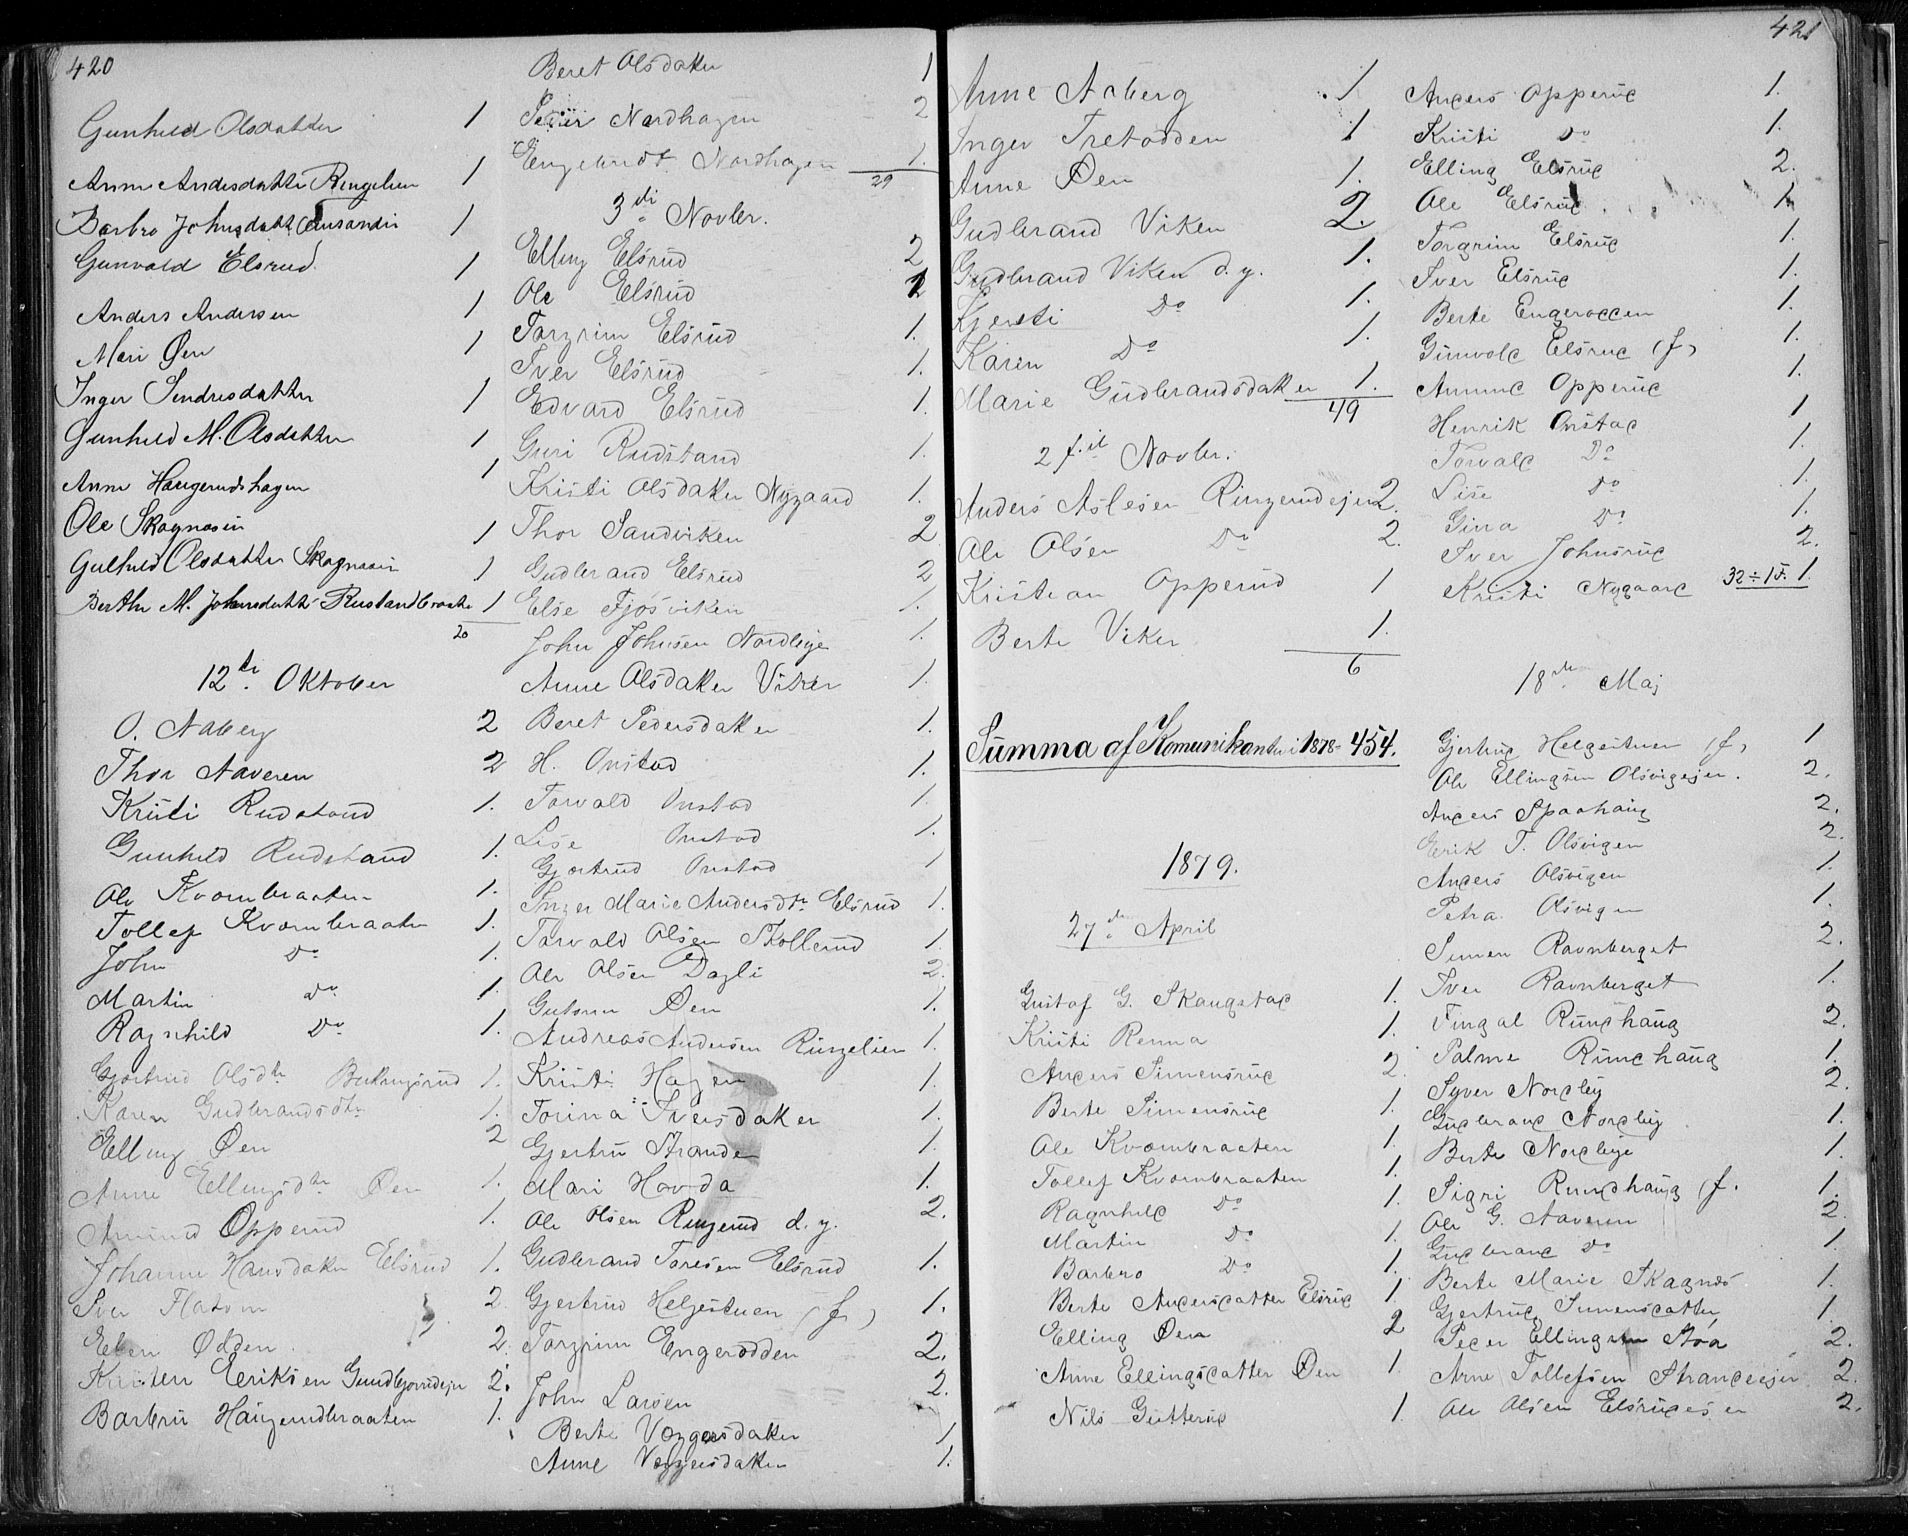 420
Gunhild Olsdatter 1
Anne Andersdatter Ringelien 1
Barbro Johnsdatt. 1
Gunvald Elsrud 1
Anders Andersen 1
Mari Øen 1
Inger Sendresdatter 1
Gunhild M. Olsdatter 1
Anne Haugerudshagen 1
Ole Skagnæsin 1
Gulhild Olsdatter Skagnæsin 1
Berthe M. Johnsdatte Rustandbraate 1
20
12te Oktober
O. Naberg 2
Thor Aaveren 2
Kristi Rudstand 1.
Gunhild Rudstand 1.
Ole Kvernbraaten 1.
Tollef Kvernbraaten 1.
John Do 1.
Martin Do 1.
Ragnhild Do 1.
Gjertrud Olsdtr 1.
Karen Gudbrandsdtr 1.
Elling Øen 2
Anne Ellingsdtr Øen 1.
Amund Opperud 1.
Johanne Hansdatter Elsrud 1.
Iver Flatom 2.
Eben Odden 2.
Kristen Eriksen 2.
Barbru Haugerudbraaten 1.
Beret Olsdatter 1
Peder Nordhagen 2
Engebridt Nordhagen 1.
29
3di Novbr.
Elling Elsrud 2
Ole Elsrud 2
Torgrim Elsrud 1.
Iver Elsrud 1.
Edvard Elsrud 1.
Guri Rudstand 1.
Kristi Olsdatter Nygaard 1.
Thor Sandviken 2
Gudbrand Elsrud 2
Else Fjøsviken 1.
John Johnsen Nordbye 1.
Anne Olsdatter Viker 1.
Beret Pedersdatter 1.
H. Onstad 1.
Torvald Onstad 1.
Lise Onstad 1.
Gjertrud Onstad 1
Inger Marie Andersdtr Elsrud 1.
Torvald Olsen Skollerud 1.
Ole Olsen Dagli 2.
Gutorm Øen 1.
Andreas Andersen Ringelien 1.
Kristi Hagen 1.
Torina Iversdatter 1.
Gjertru Strande 1.
Mari Hovda 1.
Ole Olsen Ringerud d. y. 2.
Gudbrand Toresen Elsrud 1.
Gjertrud Helgestuen (f.) 1.
Torgrim Engerodden 2.
John Larsen 2.
Berte 1
Anne 1.
421
Anne Aaberg 1
Inger Tretodden 1
Anne Øen 1.
Gudbrand Viken 2.
Gudbrand Viken d. y. 1.
Kjersti Do 1.
Karen Do 1.
Marie Gudbrandsdatter 1.
49
2 Novbr.
Anders Aslesen Ringerudejer 2.
Ole Olsen Do 2.
Kristian Opperud 1
Berte Viker 1.
6
Summa af Komunikanter i 1878 = 454.
1879.
27de April
Gustaf G. Skaugstad 1.
Kristi Renna 1.
Anders Simensrud 2.
Berte Simensrud 1.
Ole Kvernbraaten 1.
Tollef Kvernbraaten 1.
Ragnhild Do 1.
Martin Do 1.
Barbro Do 1.
Berte Andersdatter Elsrud 1.
Elling Øen 2
Anne Ellingsdatter Øen 1.
Nils Gutterud 1.
Anders Opperud 1.
Kristi Do 1.
Elling Elsrud 2.
Ole Elsrud 1.
Torgrim Elsrud 1.
Iver Elsrud 1.
Berte Engerodden 1.
Gunvold Elsrud (f.) 1.
Amund Opperud 1.
Henrik Onstad 1
Torvald Do 1.
Lise Do 1.
Gina Do 1.
Iver Johnsrud 2.
Kristi Nygaard 32 ÷ 1 F. 1.
18de Maj
Gjertrud Helgestuen (f.) 1
Ole Ellingsen Olsvigejer. 2.
Anders Spaahaug 2.
Erik T. Olsvigen 2.
Anders Olsvigen 1.
Petra Olsvigen 1.
Simen Ravnberget 2.
Iver Ravnberget 1.
Fingal Rundhaug 2.
Palme Rundhaug 1.
Syver Nordby 2.
Gudbrand Nordby 1.
Berte Nordbye 1.
Sigri Rundhaug (f. 1.
Ole G. Aaveren 2.
Gudbrand Do 1.
Berte Marie Skagnæs 1.
Gjertrud Simensdatter 1.
Peder Ellingsen Aaa 2.
Arne Tollefsen Strandeejer 2.
Ole Olsen Elsrudejer 2.